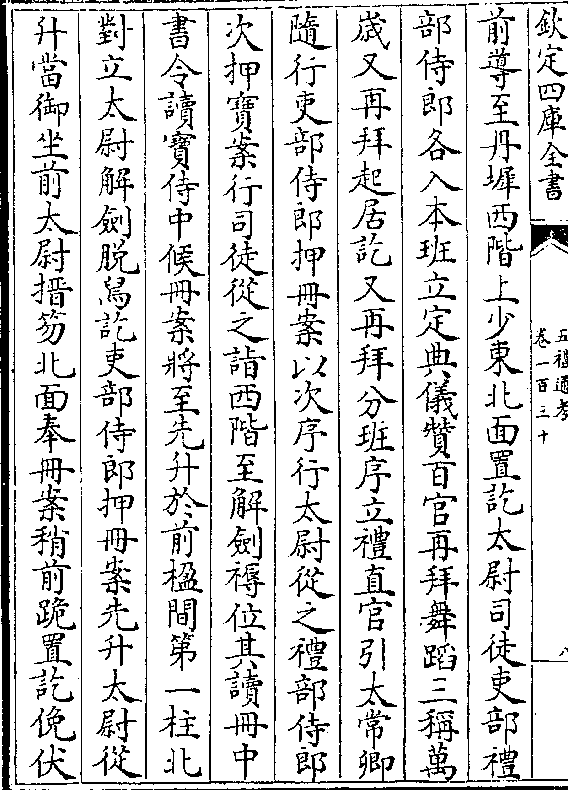 欽定四庫全書
五禮通考
卷一百三十
八
前導至丹墀西階上少東北面置訖太尉司徒吏部禮
部侍郎各入本班立定典儀贊百官再拜舞蹈三稱萬
歲又再拜起居訖又再拜分班序立禮直官引太常卿
隨行吏部侍郎押冊案以次序行太尉從之禮部侍郎
次押寶案行司徒從之詣西階至解劍褥位其讀冊中
書令讀寶侍中候冊案將至先升於前楹間第一柱北
對立太尉解劍脱舄訖吏部侍郎押冊案先升太尉從
升當御坐前太尉搢笏北面奉冊案稍前跪置訖俛伏